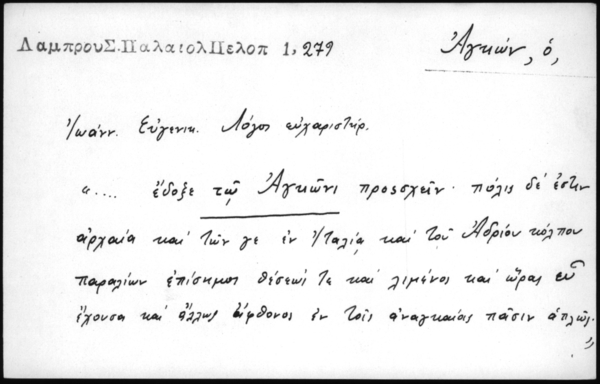 ΛαμπρουΣ.ΠαλαιολΠελοπ 1,279
Ἀγκών, ὁ,
Ἰωάνν. Εὐγενικ. Λόγος εὐχαριστήρ.
".... ἔδοξε τῷ Ἀγκῶνι προσσχεῖν· πόλις δέ ἐστιν
ἀρχαία καὶ τῶν γε ἐν Ἰταλίᾳ καὶ τοῦ Ἀδρίου κόλπου
παραλίων ἐπίσημος θέσεώς τε καὶ λιμένος καὶ ὥρας εὖ
ἔχουσα καὶ ἄλλως ἄφθονος ἐν τοῖς ἀναγκαίοις πᾶσιν ἁπλῶς."